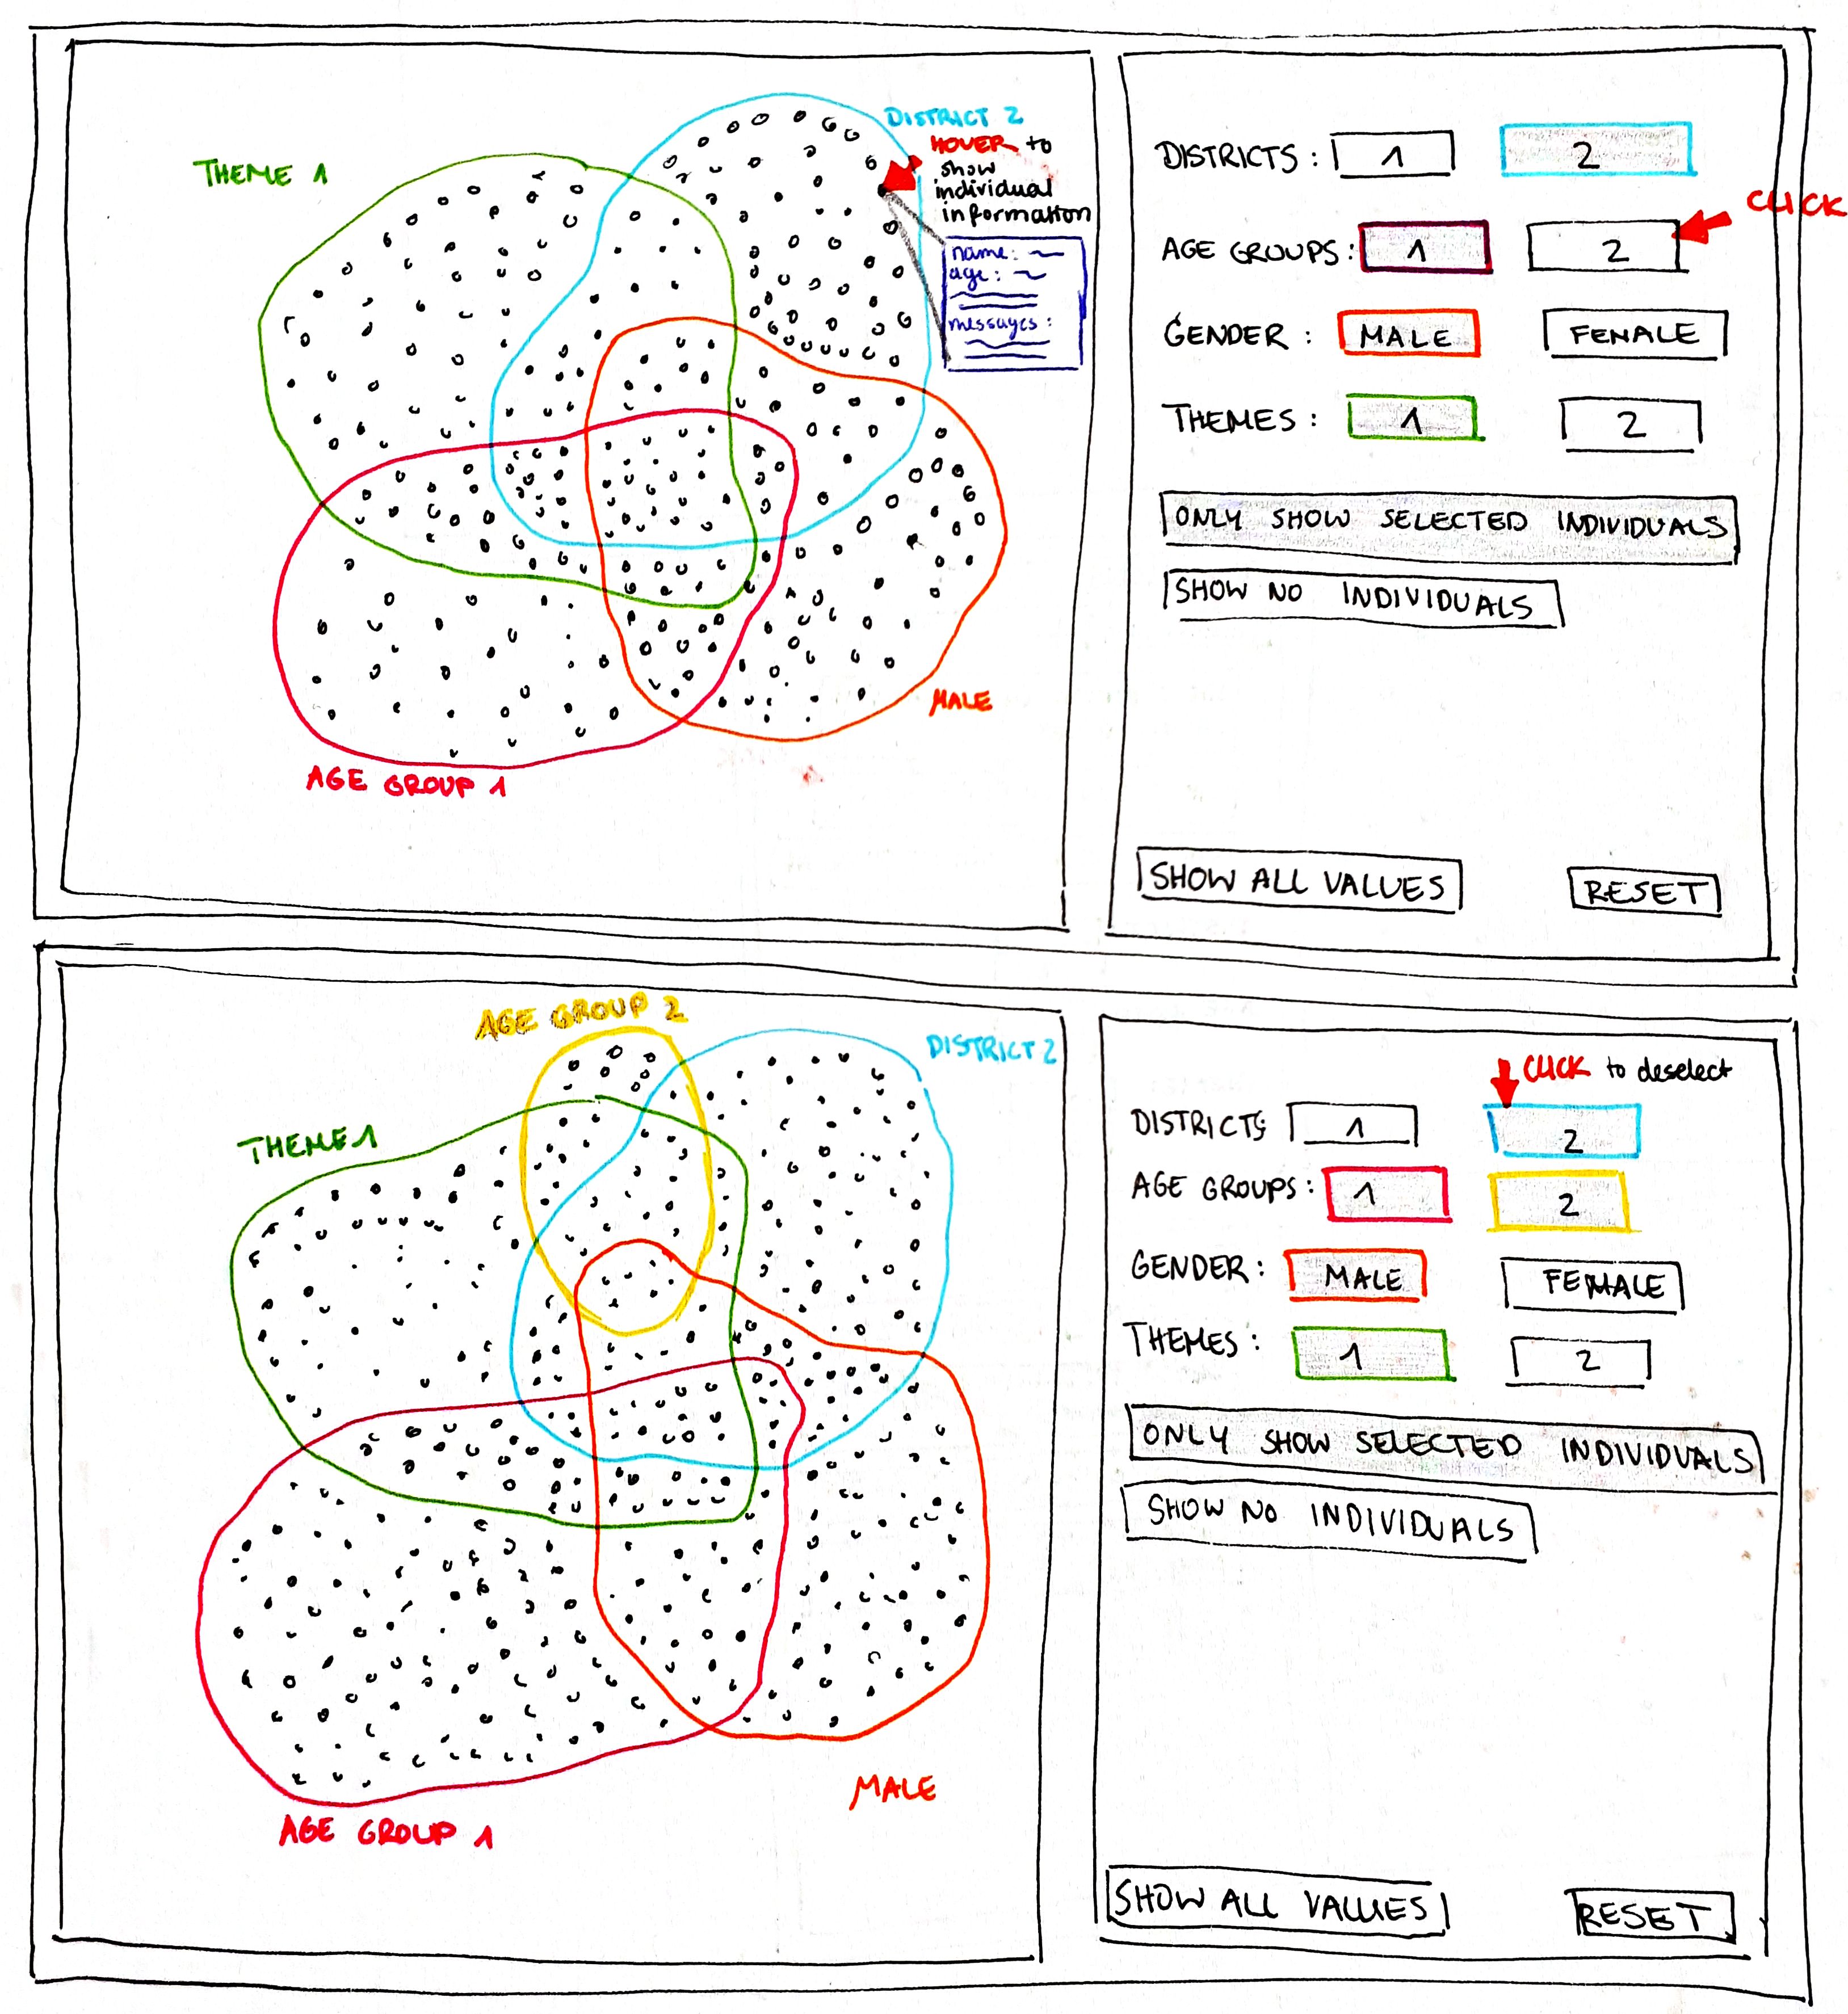 THEME 1
DISTRICT 2
HOVER to
show
individual
information
name:
age:
messages:
MALE
AGE GROUP 1
DISTRICTS: 1 2
CLICK
AGE GROUPS: 1 2
GENDER: MALE FEMALE
THEMES: 1 2
ONLY SHOW SELECTED INDIVIDUALS
SHOW NO INDIVIDUALS
SHOW ALL VALUES RESET
AGE GROUP 2
DISTRICT 2
THEME 1
MALE
AGE GROUP 1
CLICK to deselect
DISTRICTS: 1 2
AGE GROUPS: 1 2
GENDER: MALE FEMALE
THEMES: 1 2
ONLY SHOW SELECTED INDIVIDUALS
SHOW NO INDIVIDUALS
SHOW ALL VALUES RESET